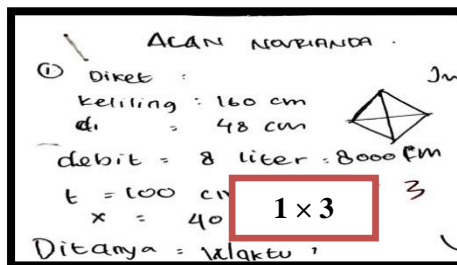 ACAN NOVRIANDA .
① Diket :
keliling : 160 cm
d₁ = 48 cm
debit = 8 liter = 8000 cm
t = 100 3
x = 40
1 × 3
Ditanya = Waktu ?